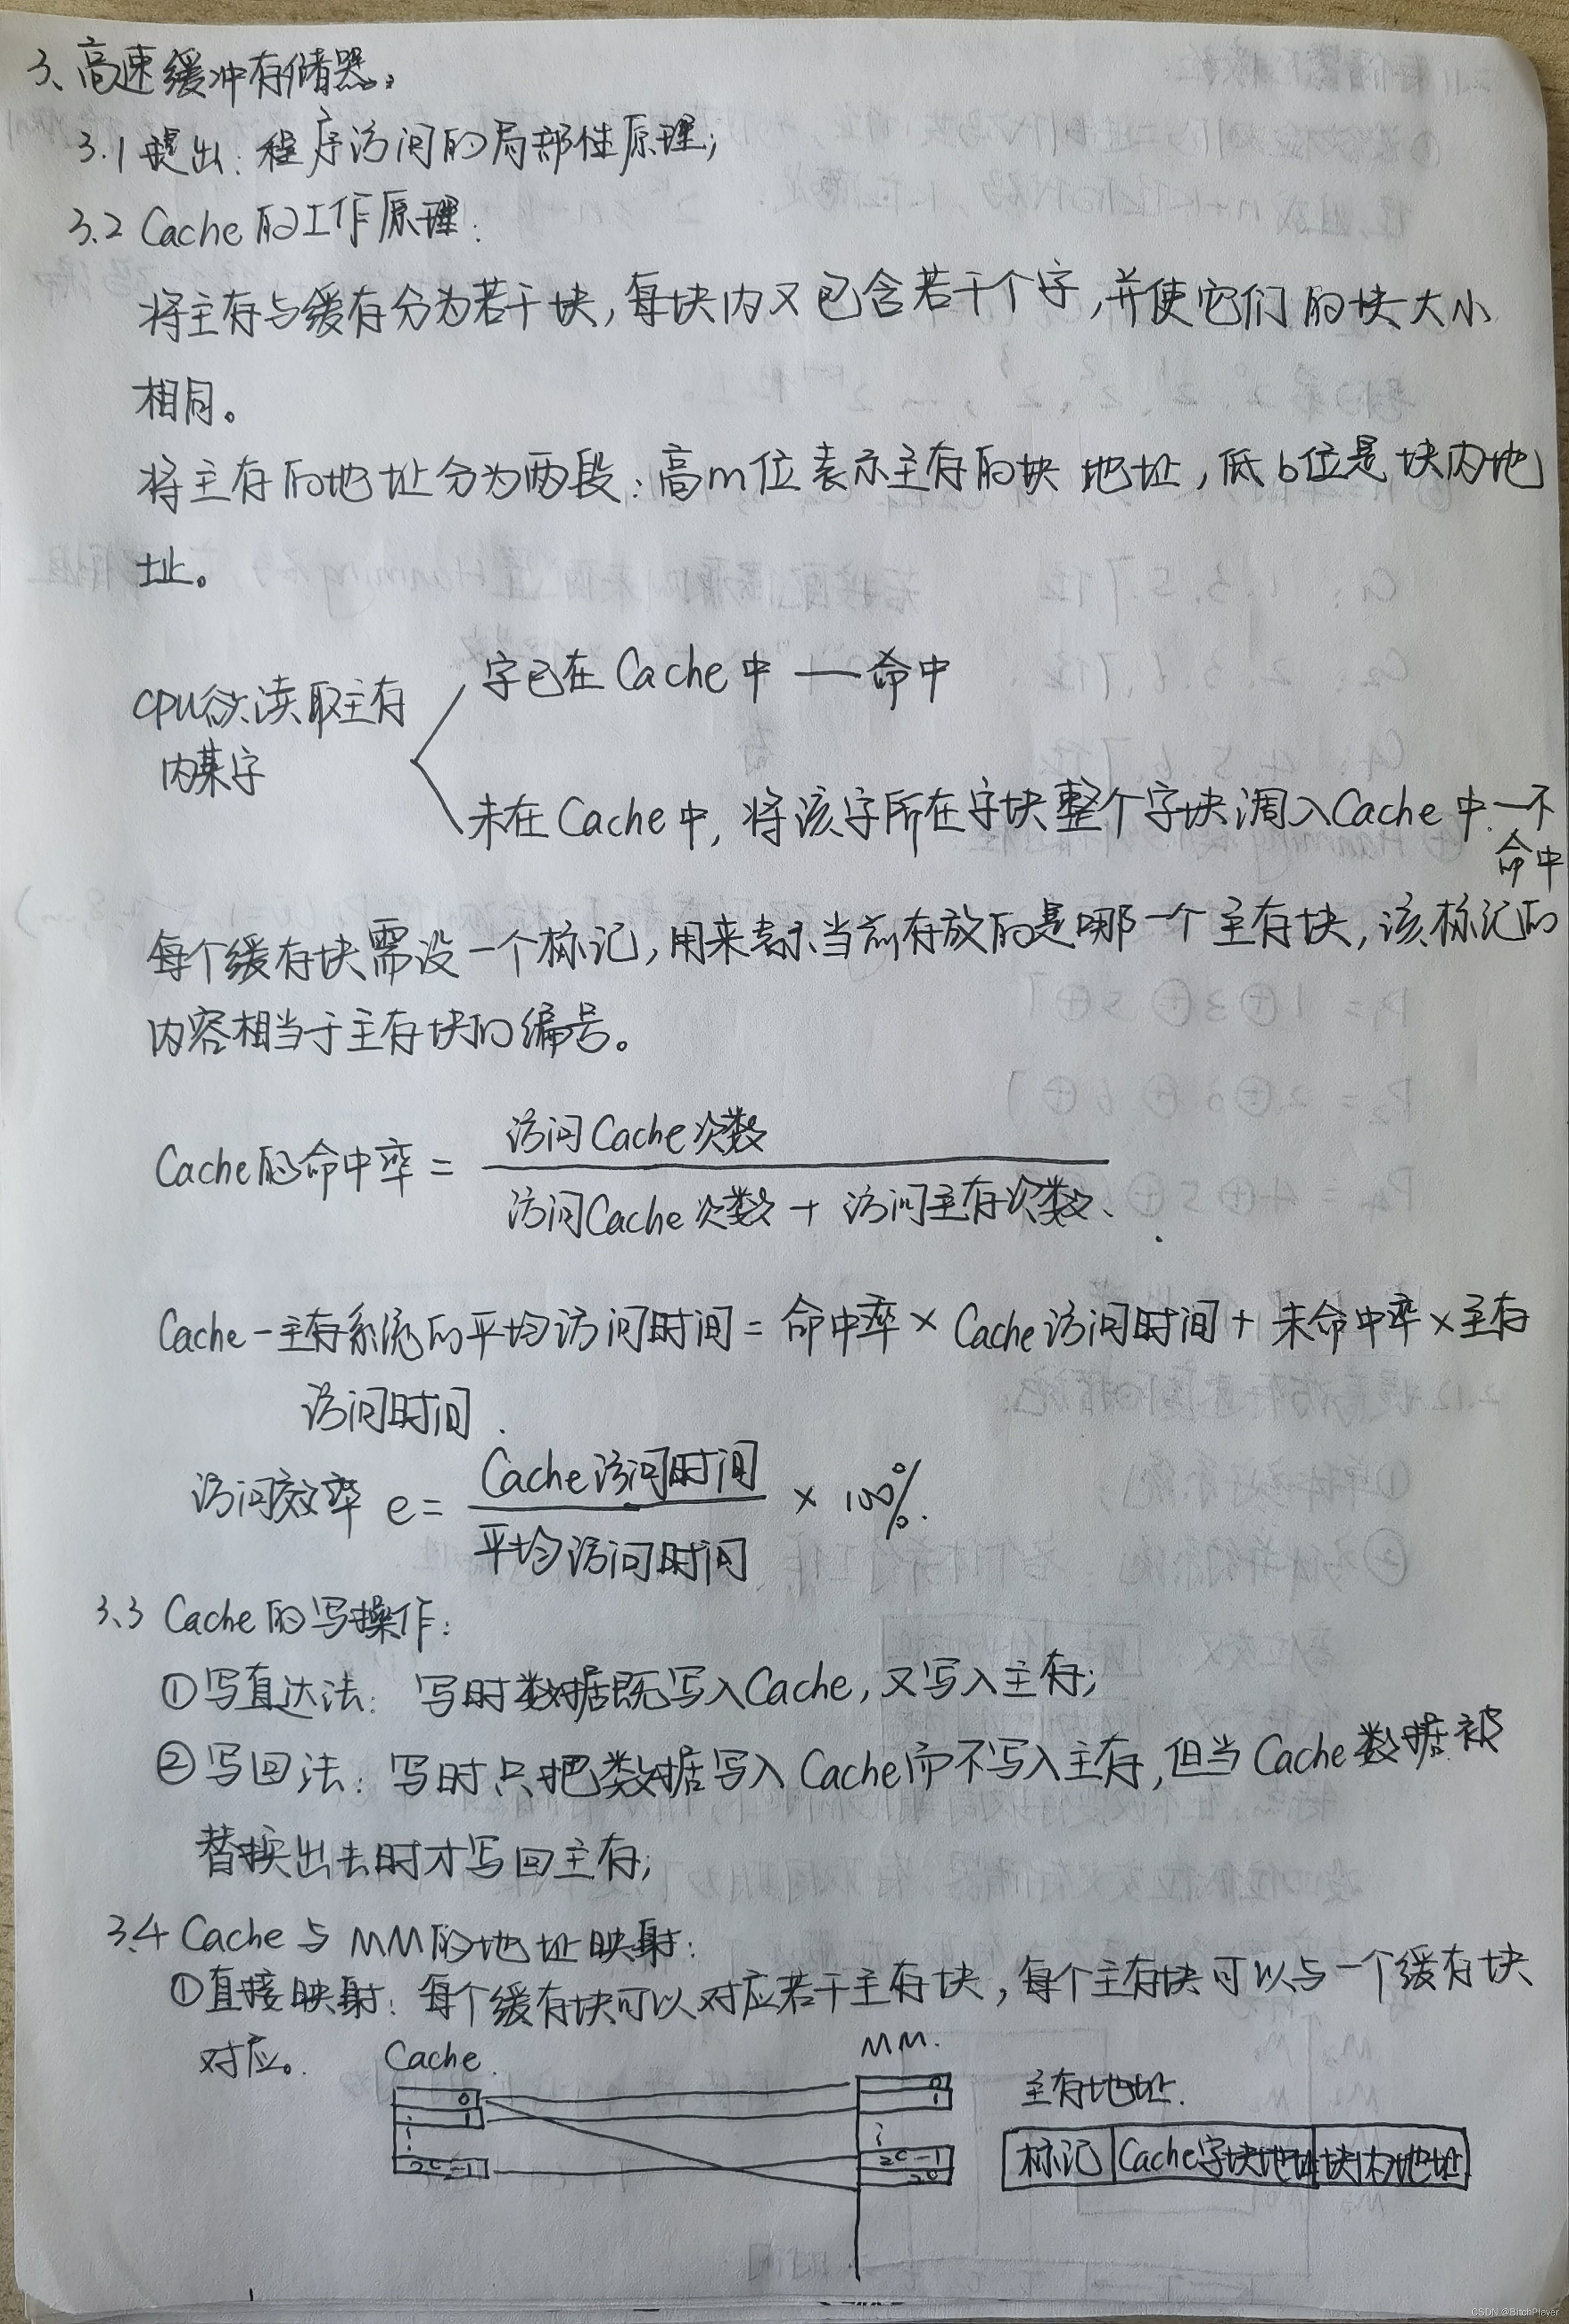 3、高速缓冲存储器。
3.1 提出：程序访问的局部性原理；
3.2 Cache的工作原理：
将主存与缓存分为若干块，每块内又包含若干个字，并使它们的块大小
相同。
将主存的地址分为两段：高m位表示主存的块地址，低b位是块内地
址。
字已在Cache中 — 命中
CPU欲读取主存
内某字
未在Cache中，将该字所在字块整个字块调入Cache中.—不
命中
每个缓存块需设一个标记，用来表示当前存放的是哪一个主存块，该标记的
内容相当于主存块的编号。
访问Cache次数
Cache的命中率 =
访问Cache次数 + 访问主存次数、
Cache-主存系统的平均访问时间 = 命中率 × Cache访问时间 + 未命中率 × 主存
访问时间.
Cache访问时间
访问效率 e = × 100%.
平均访问时间
3.3 Cache的写操作：
①写直达法：写时数据既写入Cache，又写入主存；
②写回法：写时只把数据写入Cache而不写入主存，但当Cache数据被
替换出去时才写回主存；
3.4 Cache与MM的地址映射：
①直接映射：每个缓存块可以对应若干主存块，每个主存块可以与一个缓存块
对应。 Cache. MM.
0 0 主存地址.
1 1
2c-1 2c-1 标记 Cache字块地址 块内地址
2c
CSDN @BitchPlayer